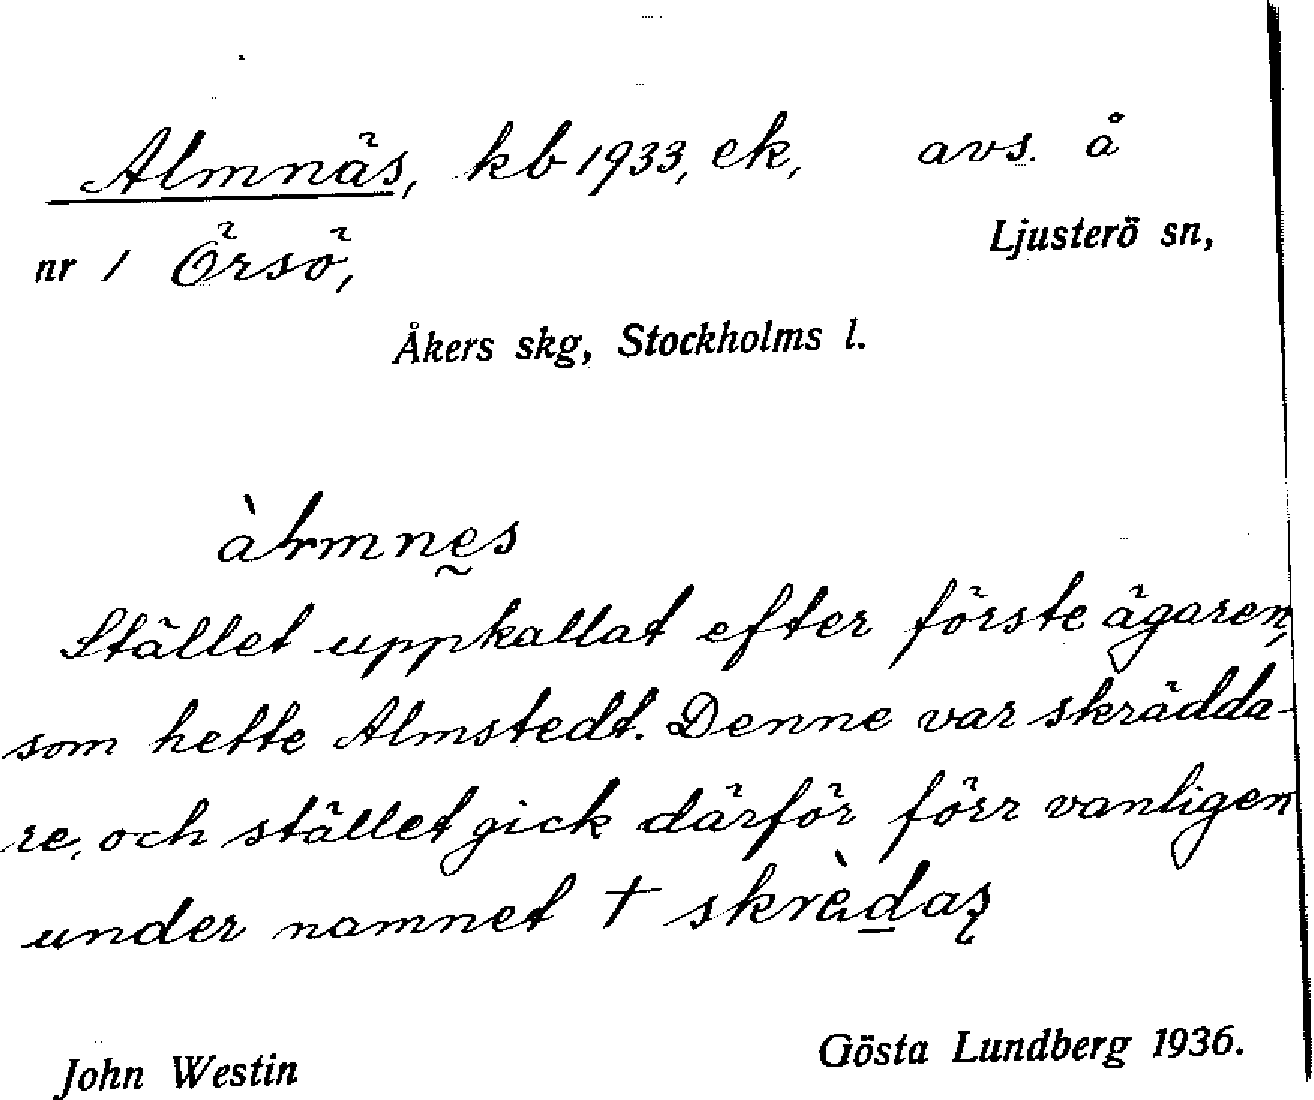 Almnäs, kb 1933, ek, avs. å
nr 1 Örsö, Ljusterö sn,
Åkers skg, Stockholms l.
àlmnes
Stället uppkallat efter förste ägaren,
som hette Almstedt. Denne var skrädda-
re, och stället gick därför förr vanligen
under namnet †
John Westin Gösta Lundberg 1936.